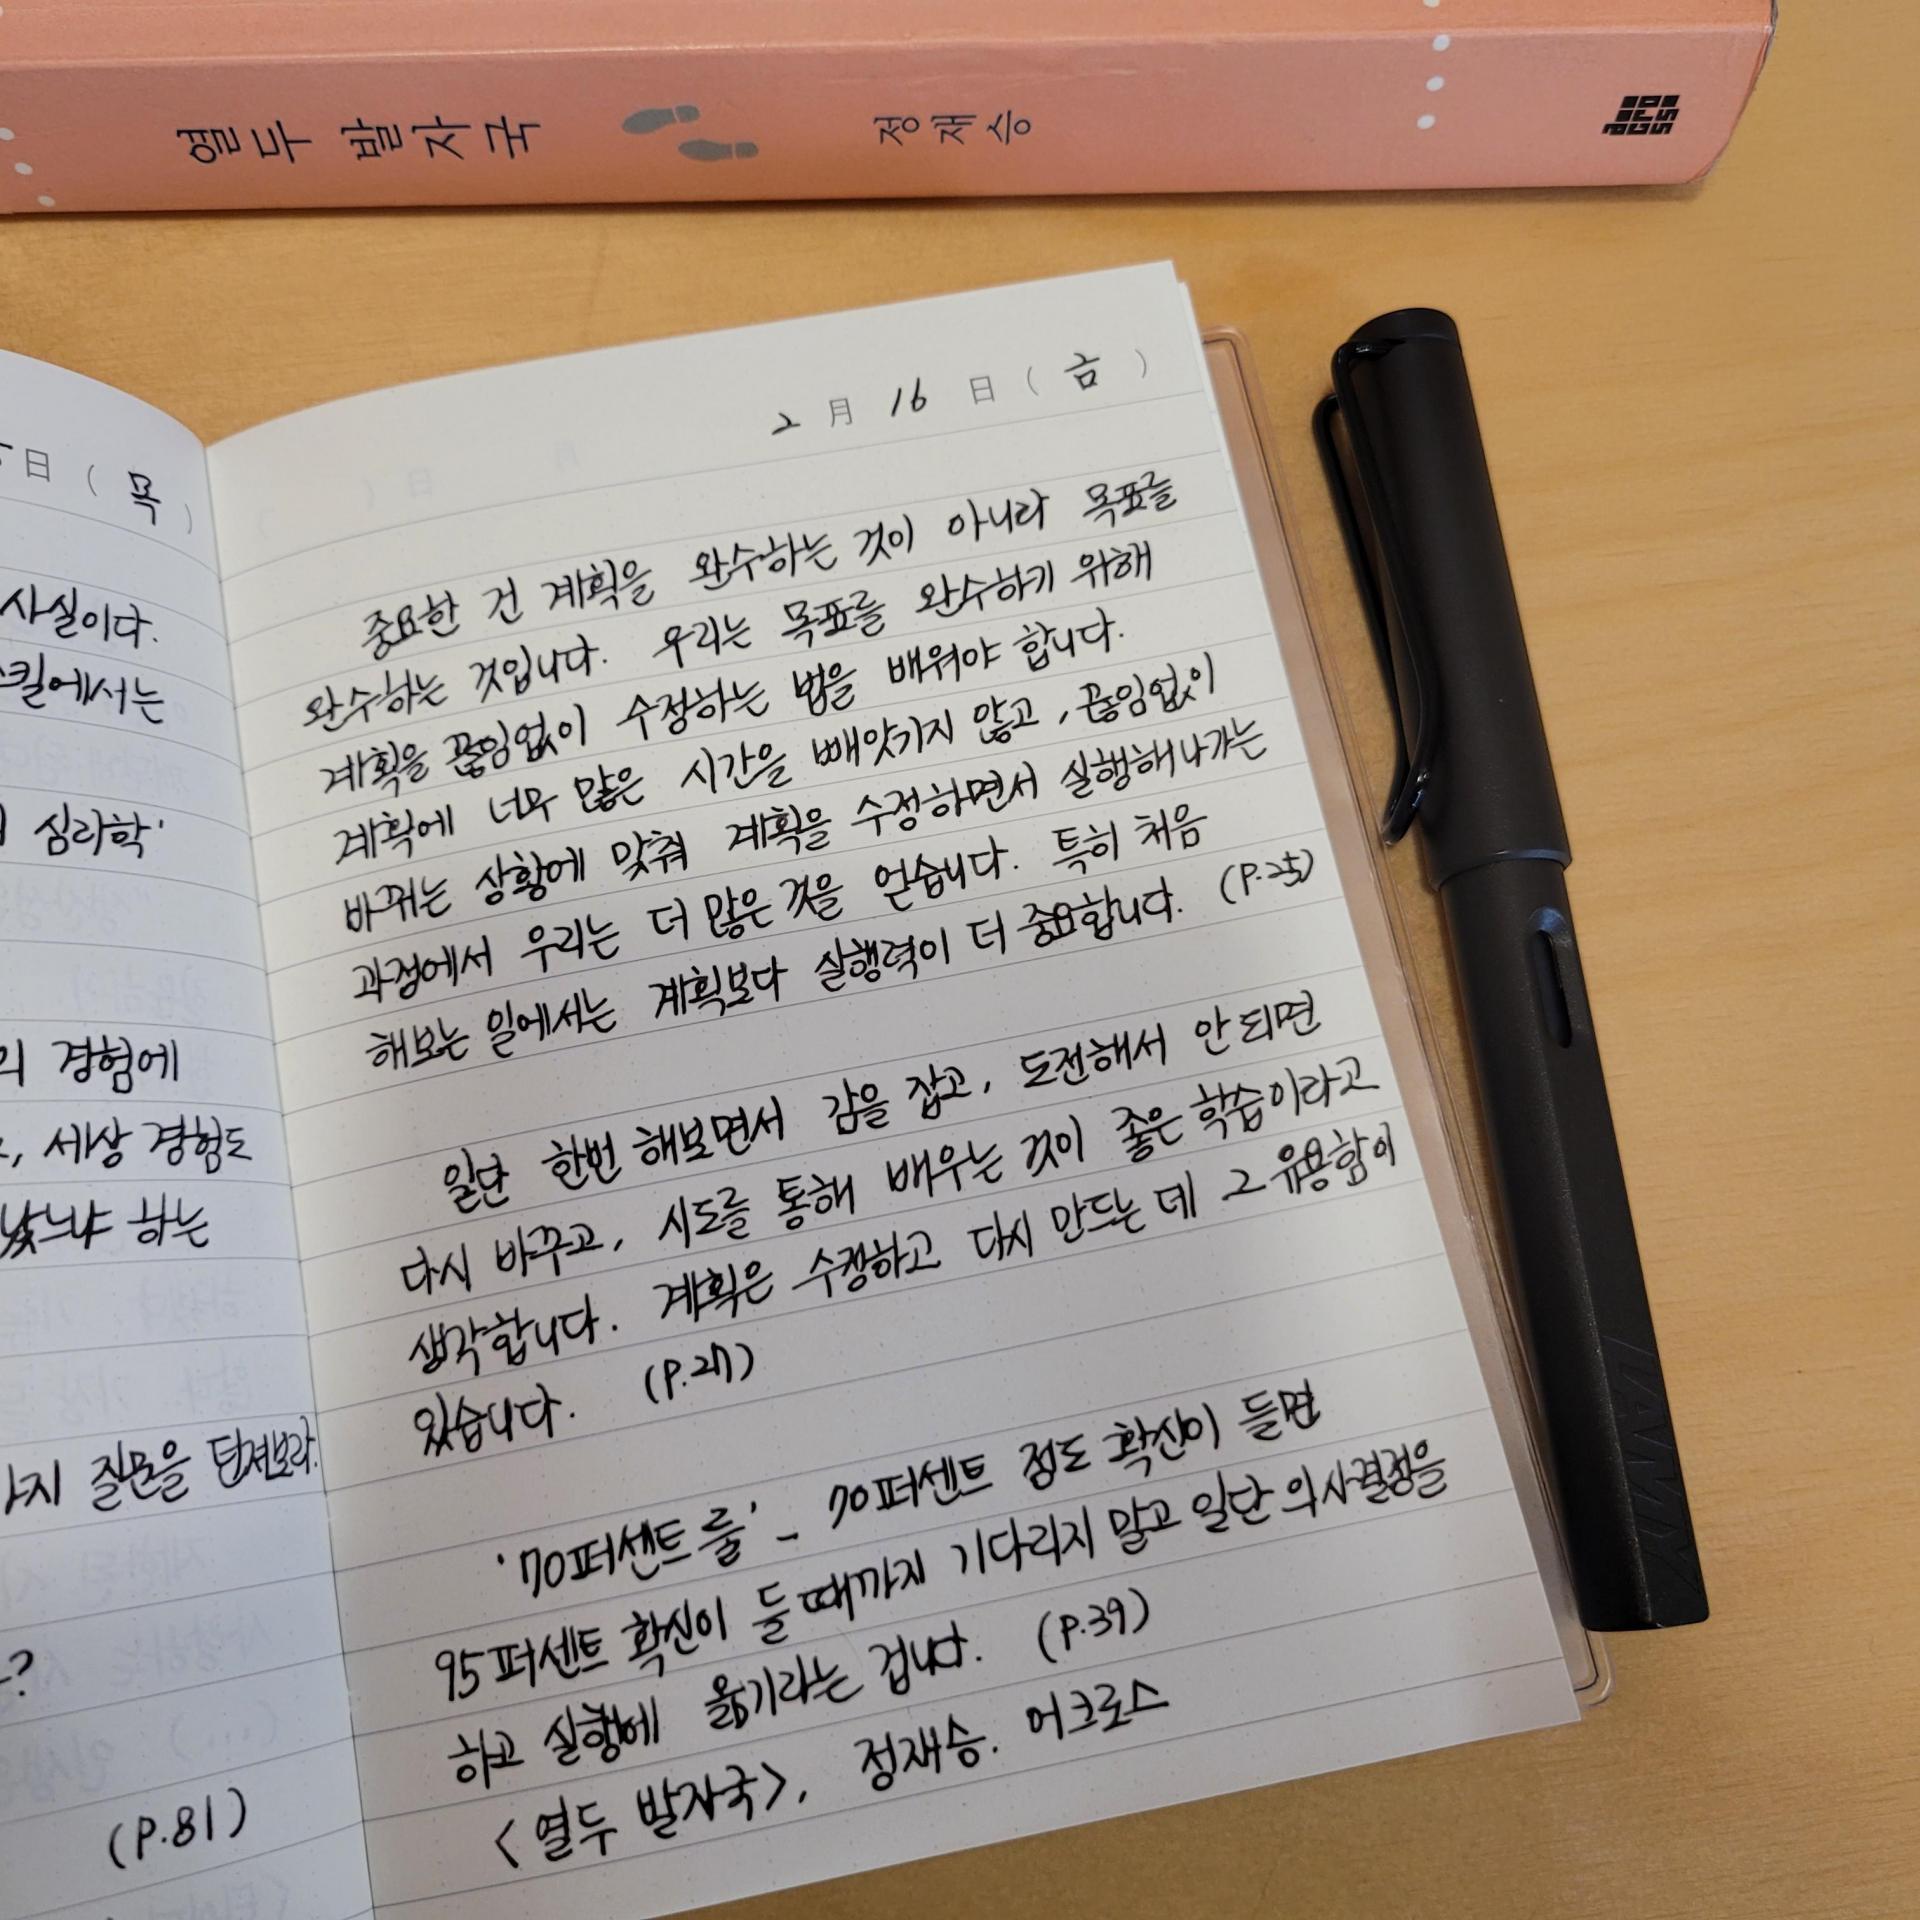 열두 발자국 정재승
across
日 ( 목 )
사실이다.
스킬에서는
심리학'
의 경험에
, 세상 경험도
났느냐 하는
가지 질문을 던져보라.
?
(P.81)
2 月 16 日 ( 금 )
중요한 건 계획을 완수하는 것이 아니라 목표를
완수하는 것입니다. 우리는 목표를 완수하기 위해
계획을 끊임없이 수정하는 법을 배워야 합니다.
계획에 너무 많은 시간을 빼앗기지 않고, 끊임없이
바뀌는 상황에 맞춰 계획을 수정하면서 실행해나가는
과정에서 우리는 더 많은 것을 얻습니다. 특히 처음
해보는 일에서는 계획보다 실행력이 더 중요합니다. (P.25)
일단 한번 해보면서 감을 잡고, 도전해서 안 되면
다시 바꾸고, 시도를 통해 배우는 것이 좋은 학습이라고
생각합니다. 계획은 수정하고 다시 만드는 데 그 유용함이
있습니다. (P.27)
'70퍼센트 룰' - 70퍼센트 정도 확신이 들면
95퍼센트 확신이 들 때까지 기다리지 말고 일단 의사결정을
하고 실행에 옮기라는 겁니다. (P.39)
<열두 발자국>, 정재승. 어크로스
LAMY